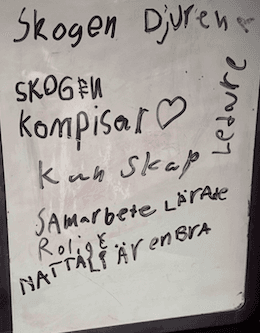 Skogen Djuren
SKOGEN
Kompisar♡
Kunskap
Ledare
SAMarbete LÄRAde
Rolig
NATTALI ÄR EN BRA